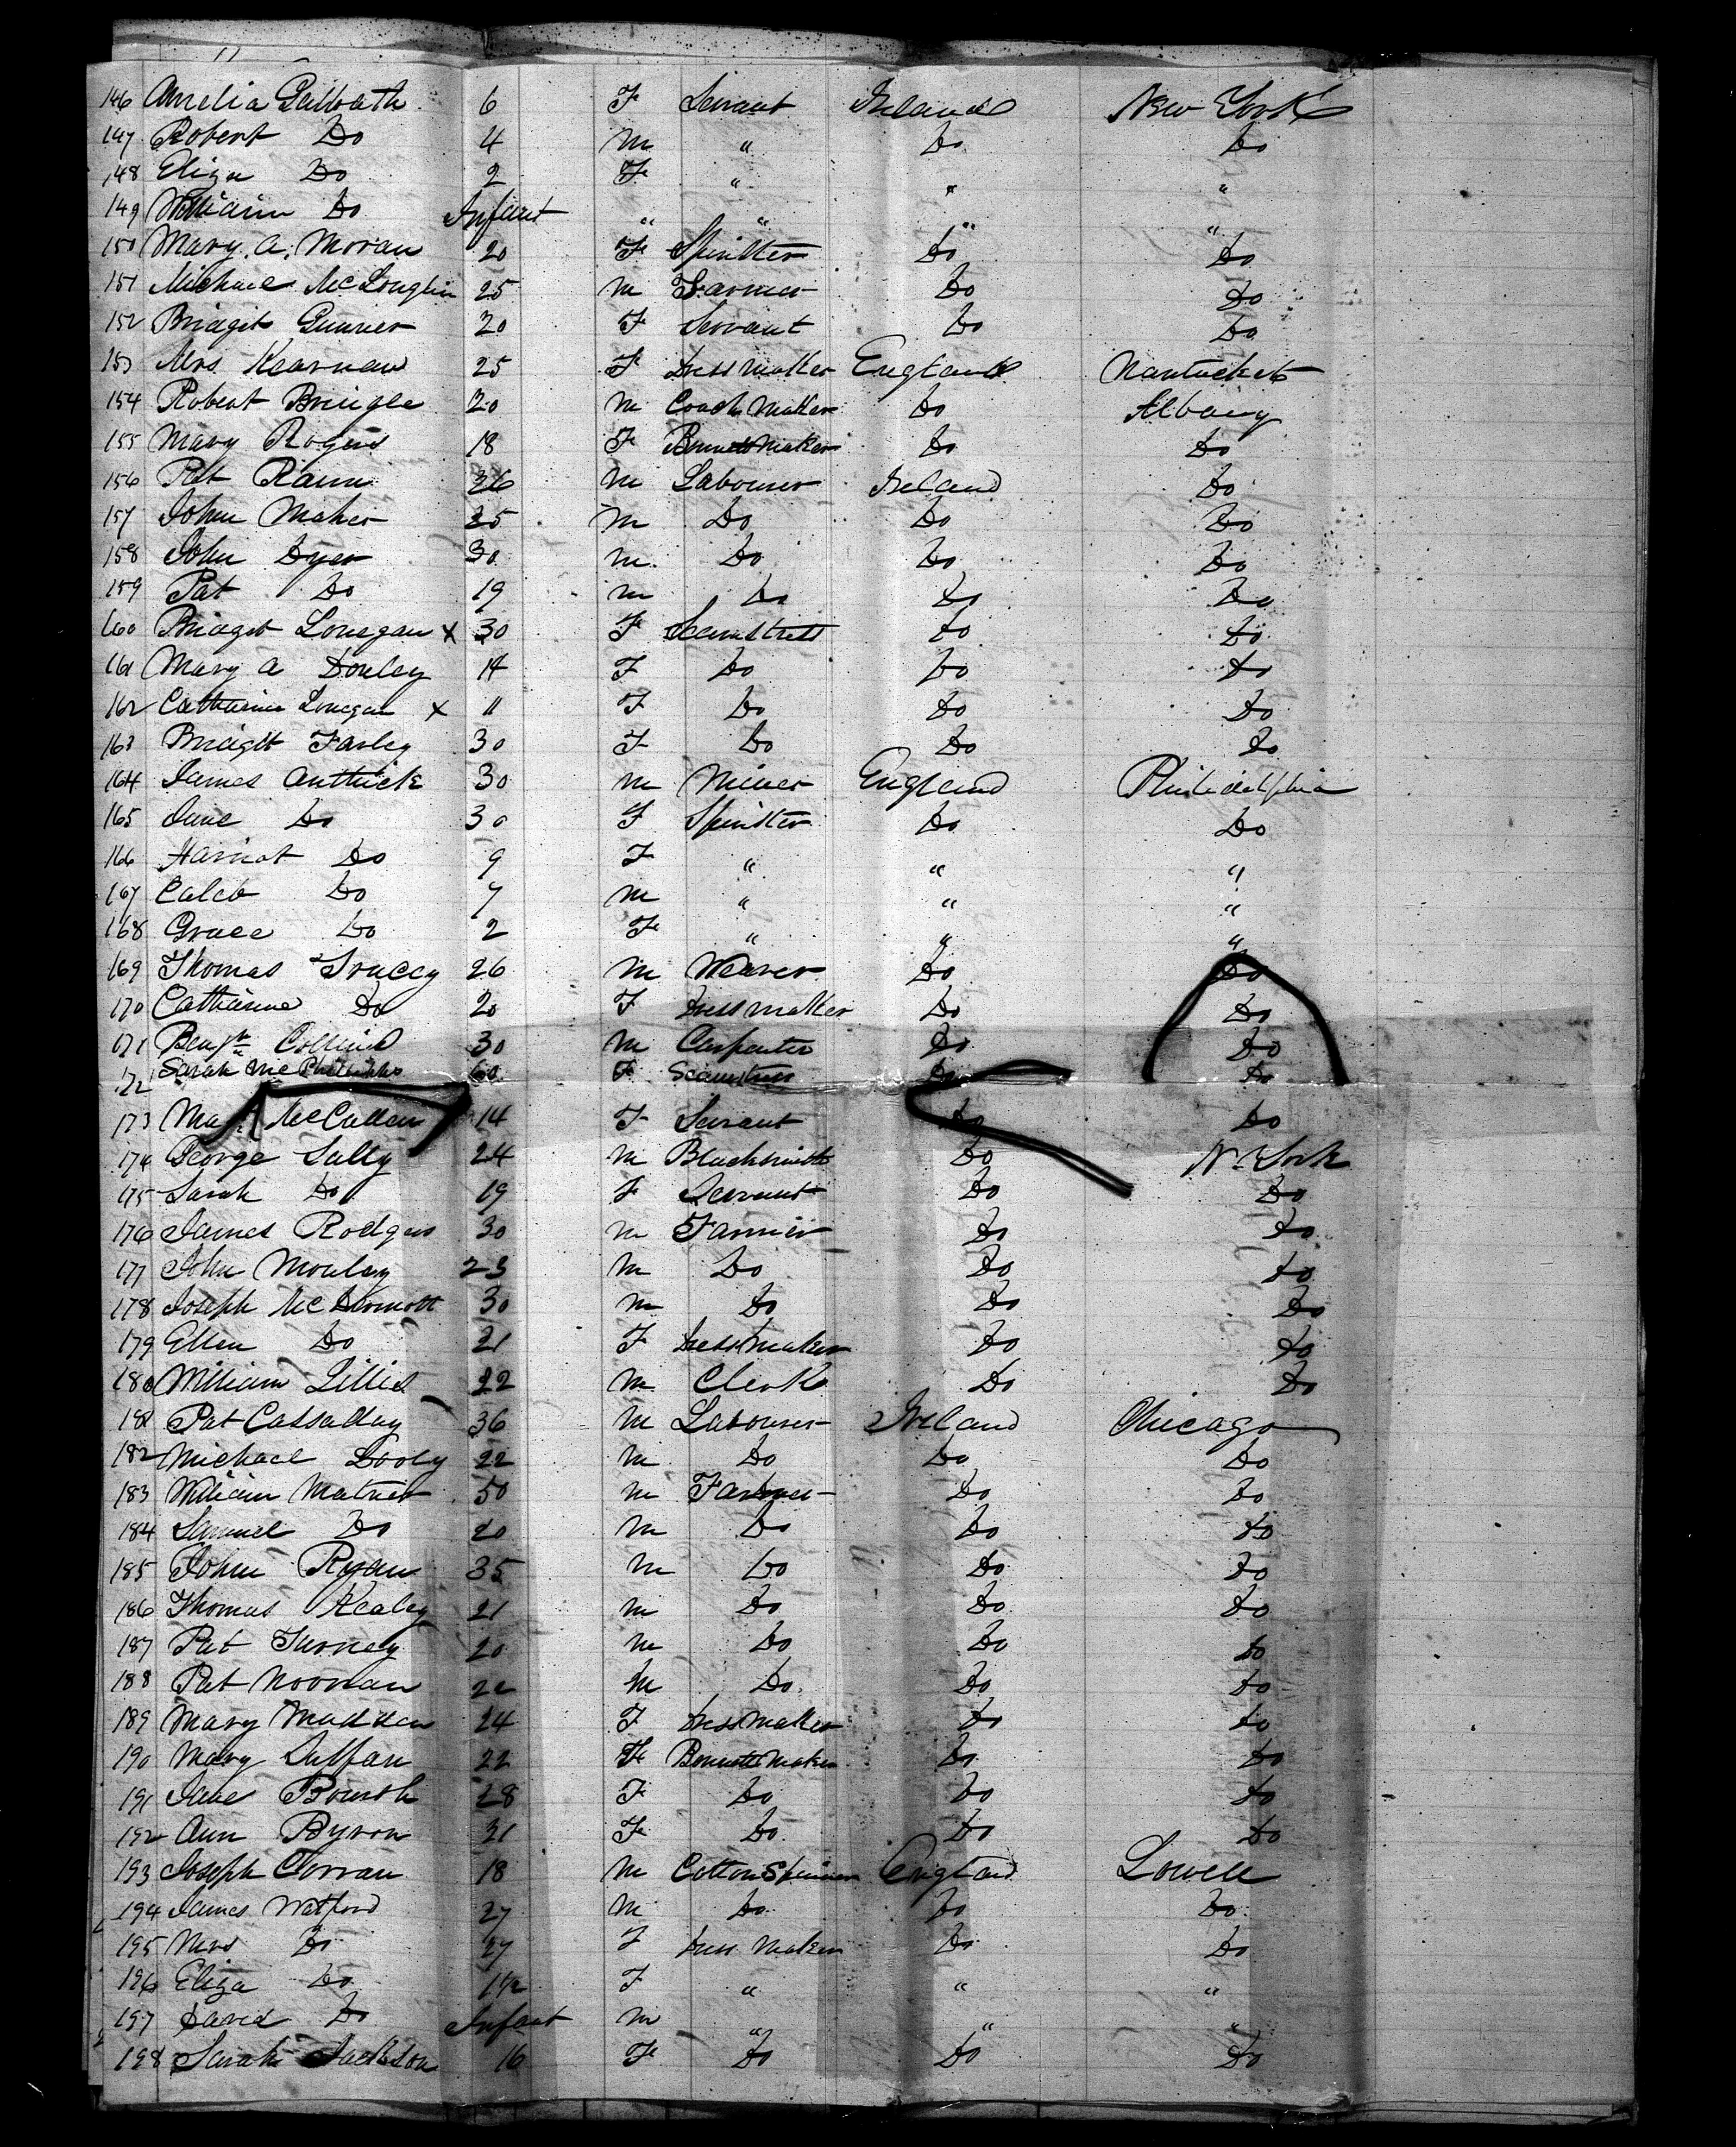 146 Amelia Galbrath 6 F Servant Ireland New York
147 Robert Do 4 m " Do Do
148 Eliza Do 2 F " " "
149 William Do Infant " " " "
150 Mary. A. Moran 20 F Spinster Do Do
151 Michael McLoughlin 25 m Farmer Do Do
152 Bridget Gunner 20 F Servant Do Do
153 Mrs. Kearnan 25 F Dress maker England Nantucket
154 Robert Bringle 20 m Coach Maker Do Albany
155 Mary Rogers 18 F Bonnett Maker Do Do
156 Pat 26 m Labourer Ireland Do
157 John Maher 25 m Do Do Do
158 John Dyer 30 m Do Do Do
159 Pat Do 19 m Do Do Do
160 Bridget Lonegan x 30 F Seamstress Do Do
161 Mary A Donley 14 F Do Do Do
162 Catharine Lonegan x 11 F Do Do Do
163 Bridget Farley 30 F Do Do Do
164 James Anthick 30 m Miner England Philidelphia
165 Jane Do 30 F Spinster Do Do
166 Harriot Do 9 F " " "
167 Caleb Do 7 m " " "
168 Grace Do 2 F " " "
169 Thomas Tracey 26 m Weaver Do Do
170 Catharine Do 20 F Dress maker Do Do
171 Benjn Collins 30 m Carpenter Do Do
172 Sarah Mc 60 F Seamstress Do Do
173 McCullen 14 F Servant Do Do
174 George Sally 24 m Blacksmith Do N. York
175 Sarah Do 19 F Servant Do Do
176 James Rodgers 30 m Farmer Do Do
177 John Mouley 23 m Do Do Do
178 Joseph McDermott 30 m Do Do Do
179 Ellen Do 21 F Dress Maker Do Do
180 William Lillis 22 m Clerk Do Do
181 Pat Cassaday 36 m Labourer Ireland Chicago
182 Michael Dooly 22 m Do Do Do
183 William Matner 50 m Farmer Do Do
184 Samuel Do 20 m Do Do Do
185 John Ryan 35 m Do Do Do
186 Thomas Kealey 21 m Do Do Do
187 Pat Turney 20 m Do Do Do
188 Pat Noonan 22 m Do Do Do
189 Mary Madden 24 F Dress Maker Do Do
190 Mary 22 F Bonnett Maker Do Do
191 Jane 28 F Do Do Do
192 Ann Byron 31 F Do Do Do
193 Joseph Corran 18 m Cotton Spinner England Lowell
194 James Watford 27 m Do Do Do
195 Mrs Do 27 F Dress Maker Do Do
196 Eliza Do 1½ F " " "
197 David Do Infant m " " "
198 Sarah Jackson 16 F Do Do Do